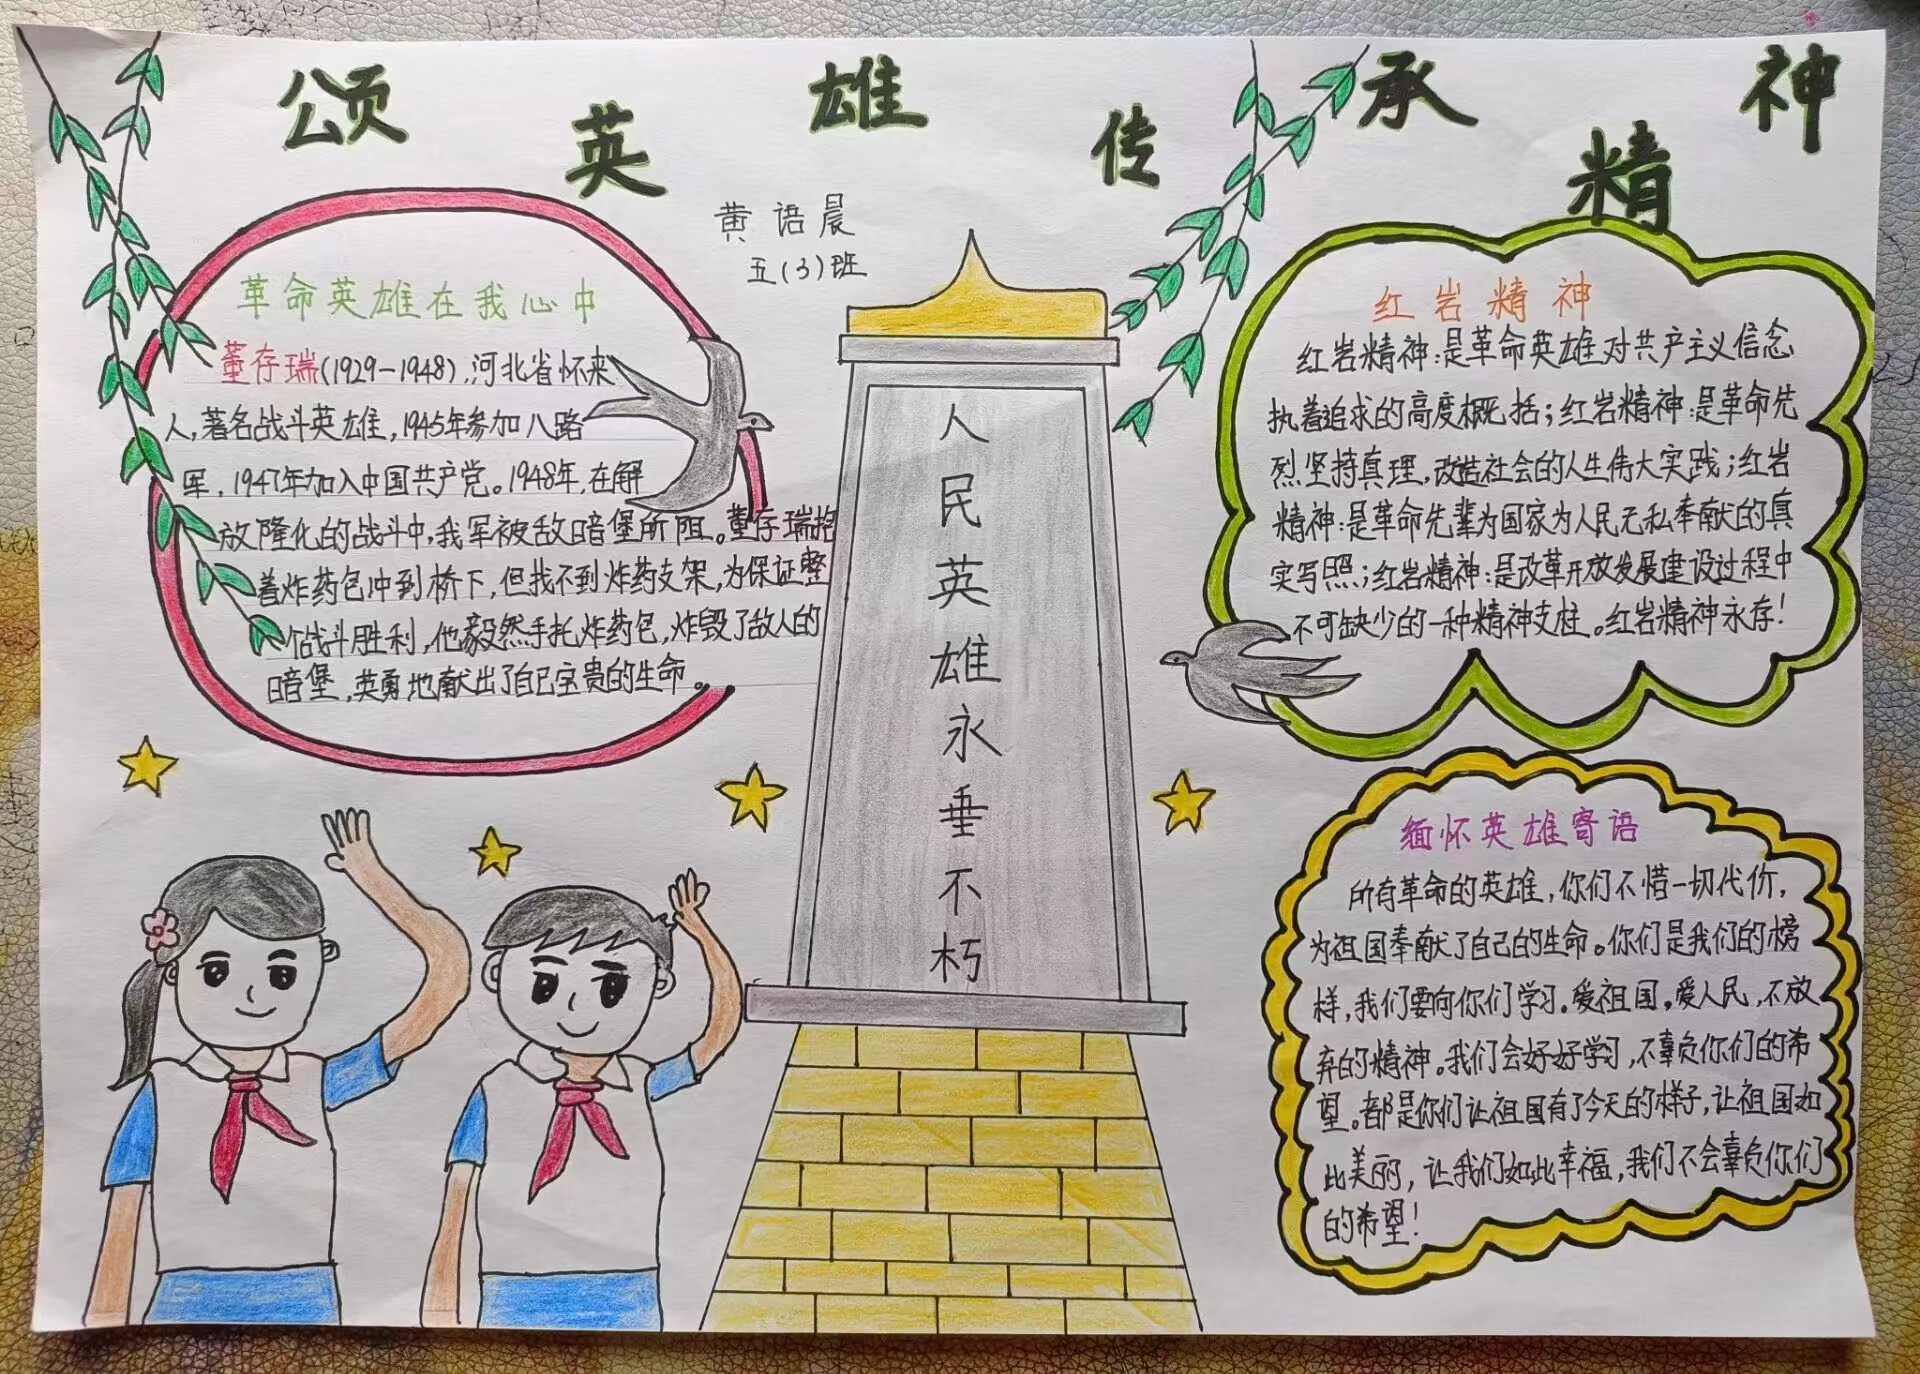 颂英雄传承精神
黄语晨
五(3)班
革命英雄在我心中
董存瑞(1929-1948),河北省怀来
人,著名战斗英雄,1945年参加八路
军,1947年加入中国共产党。1948年,在解
放隆化的战斗中,我军被敌暗堡所阻。董存瑞抱
着炸药包冲到桥下,但找不到炸药支架,为保证整
个战斗胜利,他毅然手托炸药包,炸毁了敌人的
暗堡,英勇地献出了自己宝贵的生命。
人民英雄永垂不朽
红岩精神
红岩精神:是革命英雄对共产主义信念
执着追求的高度概括;红岩精神:是革命先
烈坚持真理,改造社会的人生伟大实践;红岩
精神:是革命先辈为国家为人民无私奉献的真
实写照;红岩精神:是改革开放发展建设过程中
不可缺少的一种精神支柱。红岩精神永存!
缅怀英雄寄语
所有革命的英雄,你们不惜一切代价,
为祖国奉献了自己的生命。你们是我们的榜
样,我们要向你们学习。爱祖国。爱人民,不放
弃的精神。我们会好好学习,不辜负你们的希
望。都是你们让祖国有了今天的样子,让祖国如
此美丽,让我们如此幸福,我们不会辜负你们
的希望!